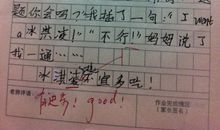 题你会吗？”我插了一句：“I want
a冰淇淋！”“不行”妈妈说了
我一通……
冰淇淋不宜多吃！
老师评语：
good!
作业完成情况
（家长签名）